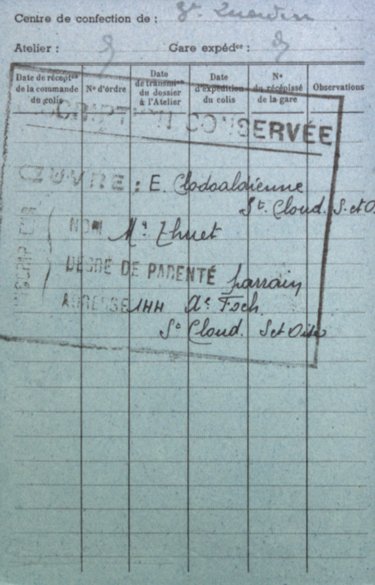 Centre de confection de : St Quentin
Atelier : Gare expédce :
Date de récept°n de la commande du colis
N° d'ordre
Date de transmis°n du dossier à l'Atelier
Date d'expédition du colis
N° du récépissé de la gare
Observations
SCRIPTION CONSERVÉE
ŒUVRE : E. Clodoaldienne
St. Cloud. S. et O
NOM Mr Thuet
DEGRÉ DE PARENTÉ parrain
ADRESSE 144 Av. Foch
St Cloud. S et Oise